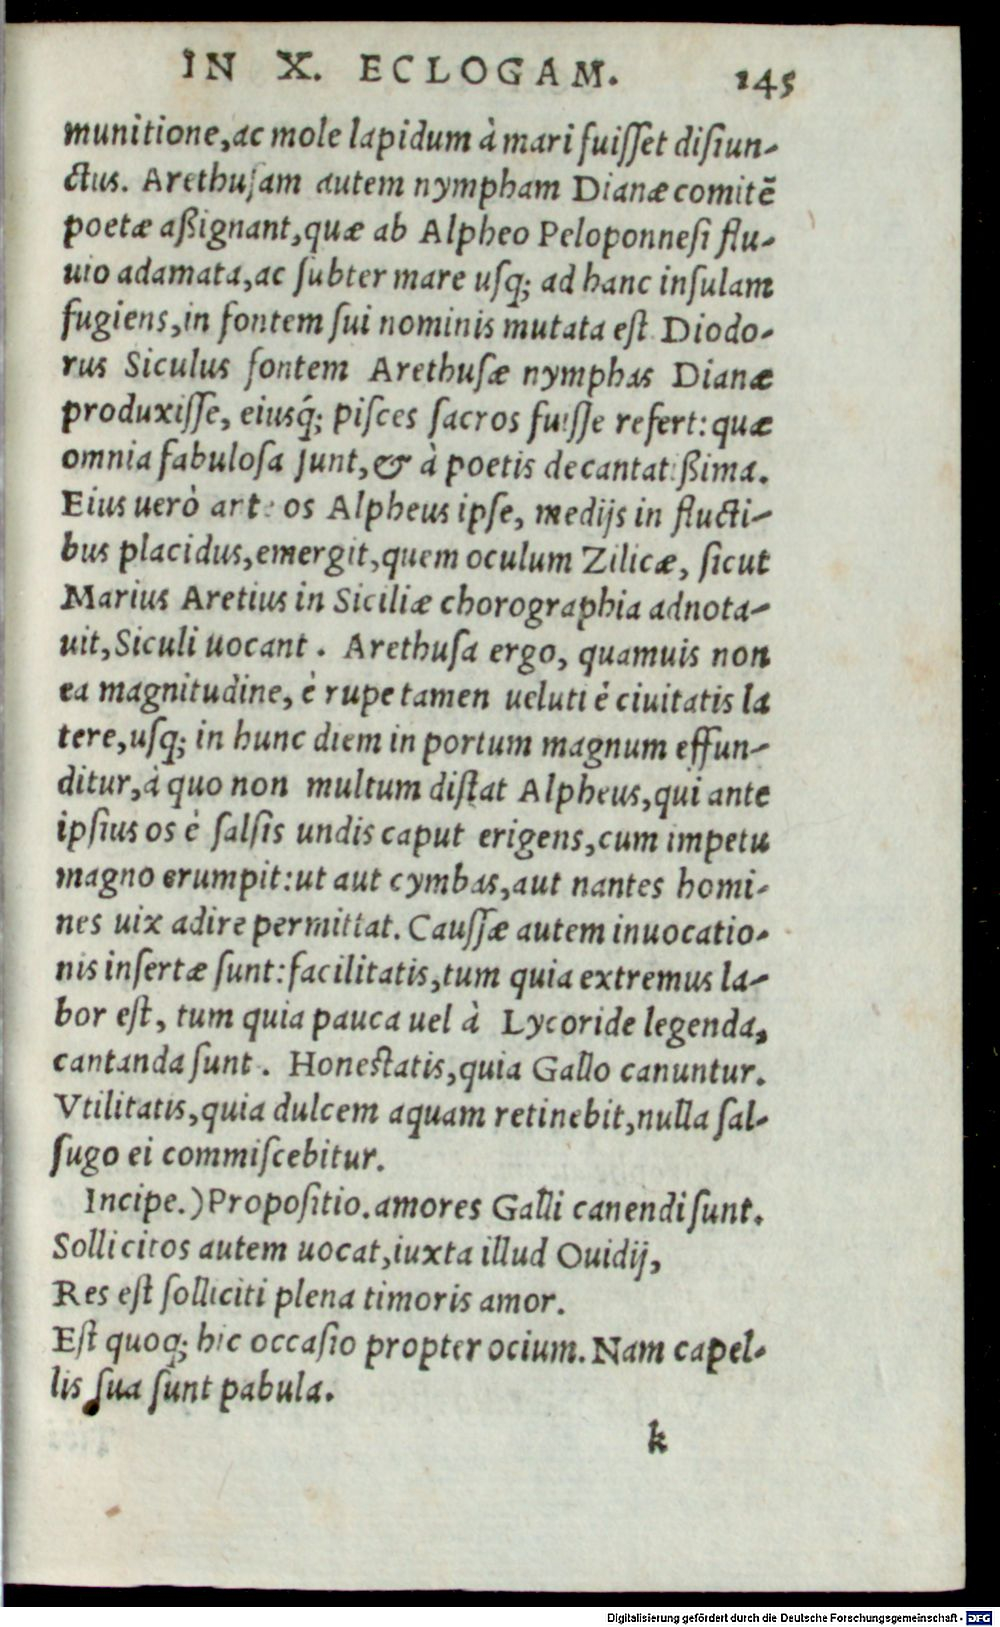 IN X. ECLOGAM. 145
munitione, ac mole lapidum à mari fuiſſet diſiun-
ctus. Arethuſam autem nympham Dianæ comitē
poetæ aßignant, quæ ab Alpheo Peloponneſi flu-
uio adamata, ac ſubter mare uſq; ad hanc inſulam
fugiens, in fontem ſui nominis mutata eſt Diodo-
rus Siculus fontem Arethuſæ nymphas Dianæ
produxiſſe, eiusq́; piſces ſacros fuiſſe refert: quæ
omnia fabuloſa ſunt, & à poetis decantatißima.
Eius uerò os Alpheus ipſe, medijs in flucti-
bus placidus, emergit, quem oculum Zilicæ, ſicut
Marius Aretius in Siciliæ chorographia adnota-
uit, Siculi uocant. Arethuſa ergo, quamuis non
ea magnitudine, è rupe tamen ueluti è ciuitatis la
tere, uſq; in hunc diem in portum magnum effun-
ditur, à quo non multum diſtat Alpheus, qui ante
ipſius os è ſalſis undis caput erigens, cum impetu
magno erumpit: ut aut cymbas, aut nantes homi-
nes uix adire permittat. Cauſſæ autem inuocatio-
nis inſertæ ſunt: facilitatis, tum quia extremus la-
bor eſt, tum quia pauca uel à Lycoride legenda,
cantanda ſunt. Honeſtatis, quia Gallo canuntur.
Vtilitatis, quia dulcem aquam retinebit, nulla ſal-
ſugo ei commiſcebitur.
Incipe.) Propoſitio. amores Galli canendi ſunt.
Sollicitos autem uocat, iuxta illud Ouidij,
Res eſt ſolliciti plena timoris amor.
Eſt quoq; hic occaſio propter ocium. Nam capel-
lis ſua ſunt pabula.
k
Digitalisierung gefördert durch die Deutsche Forschungsgemeinschaft - DFG